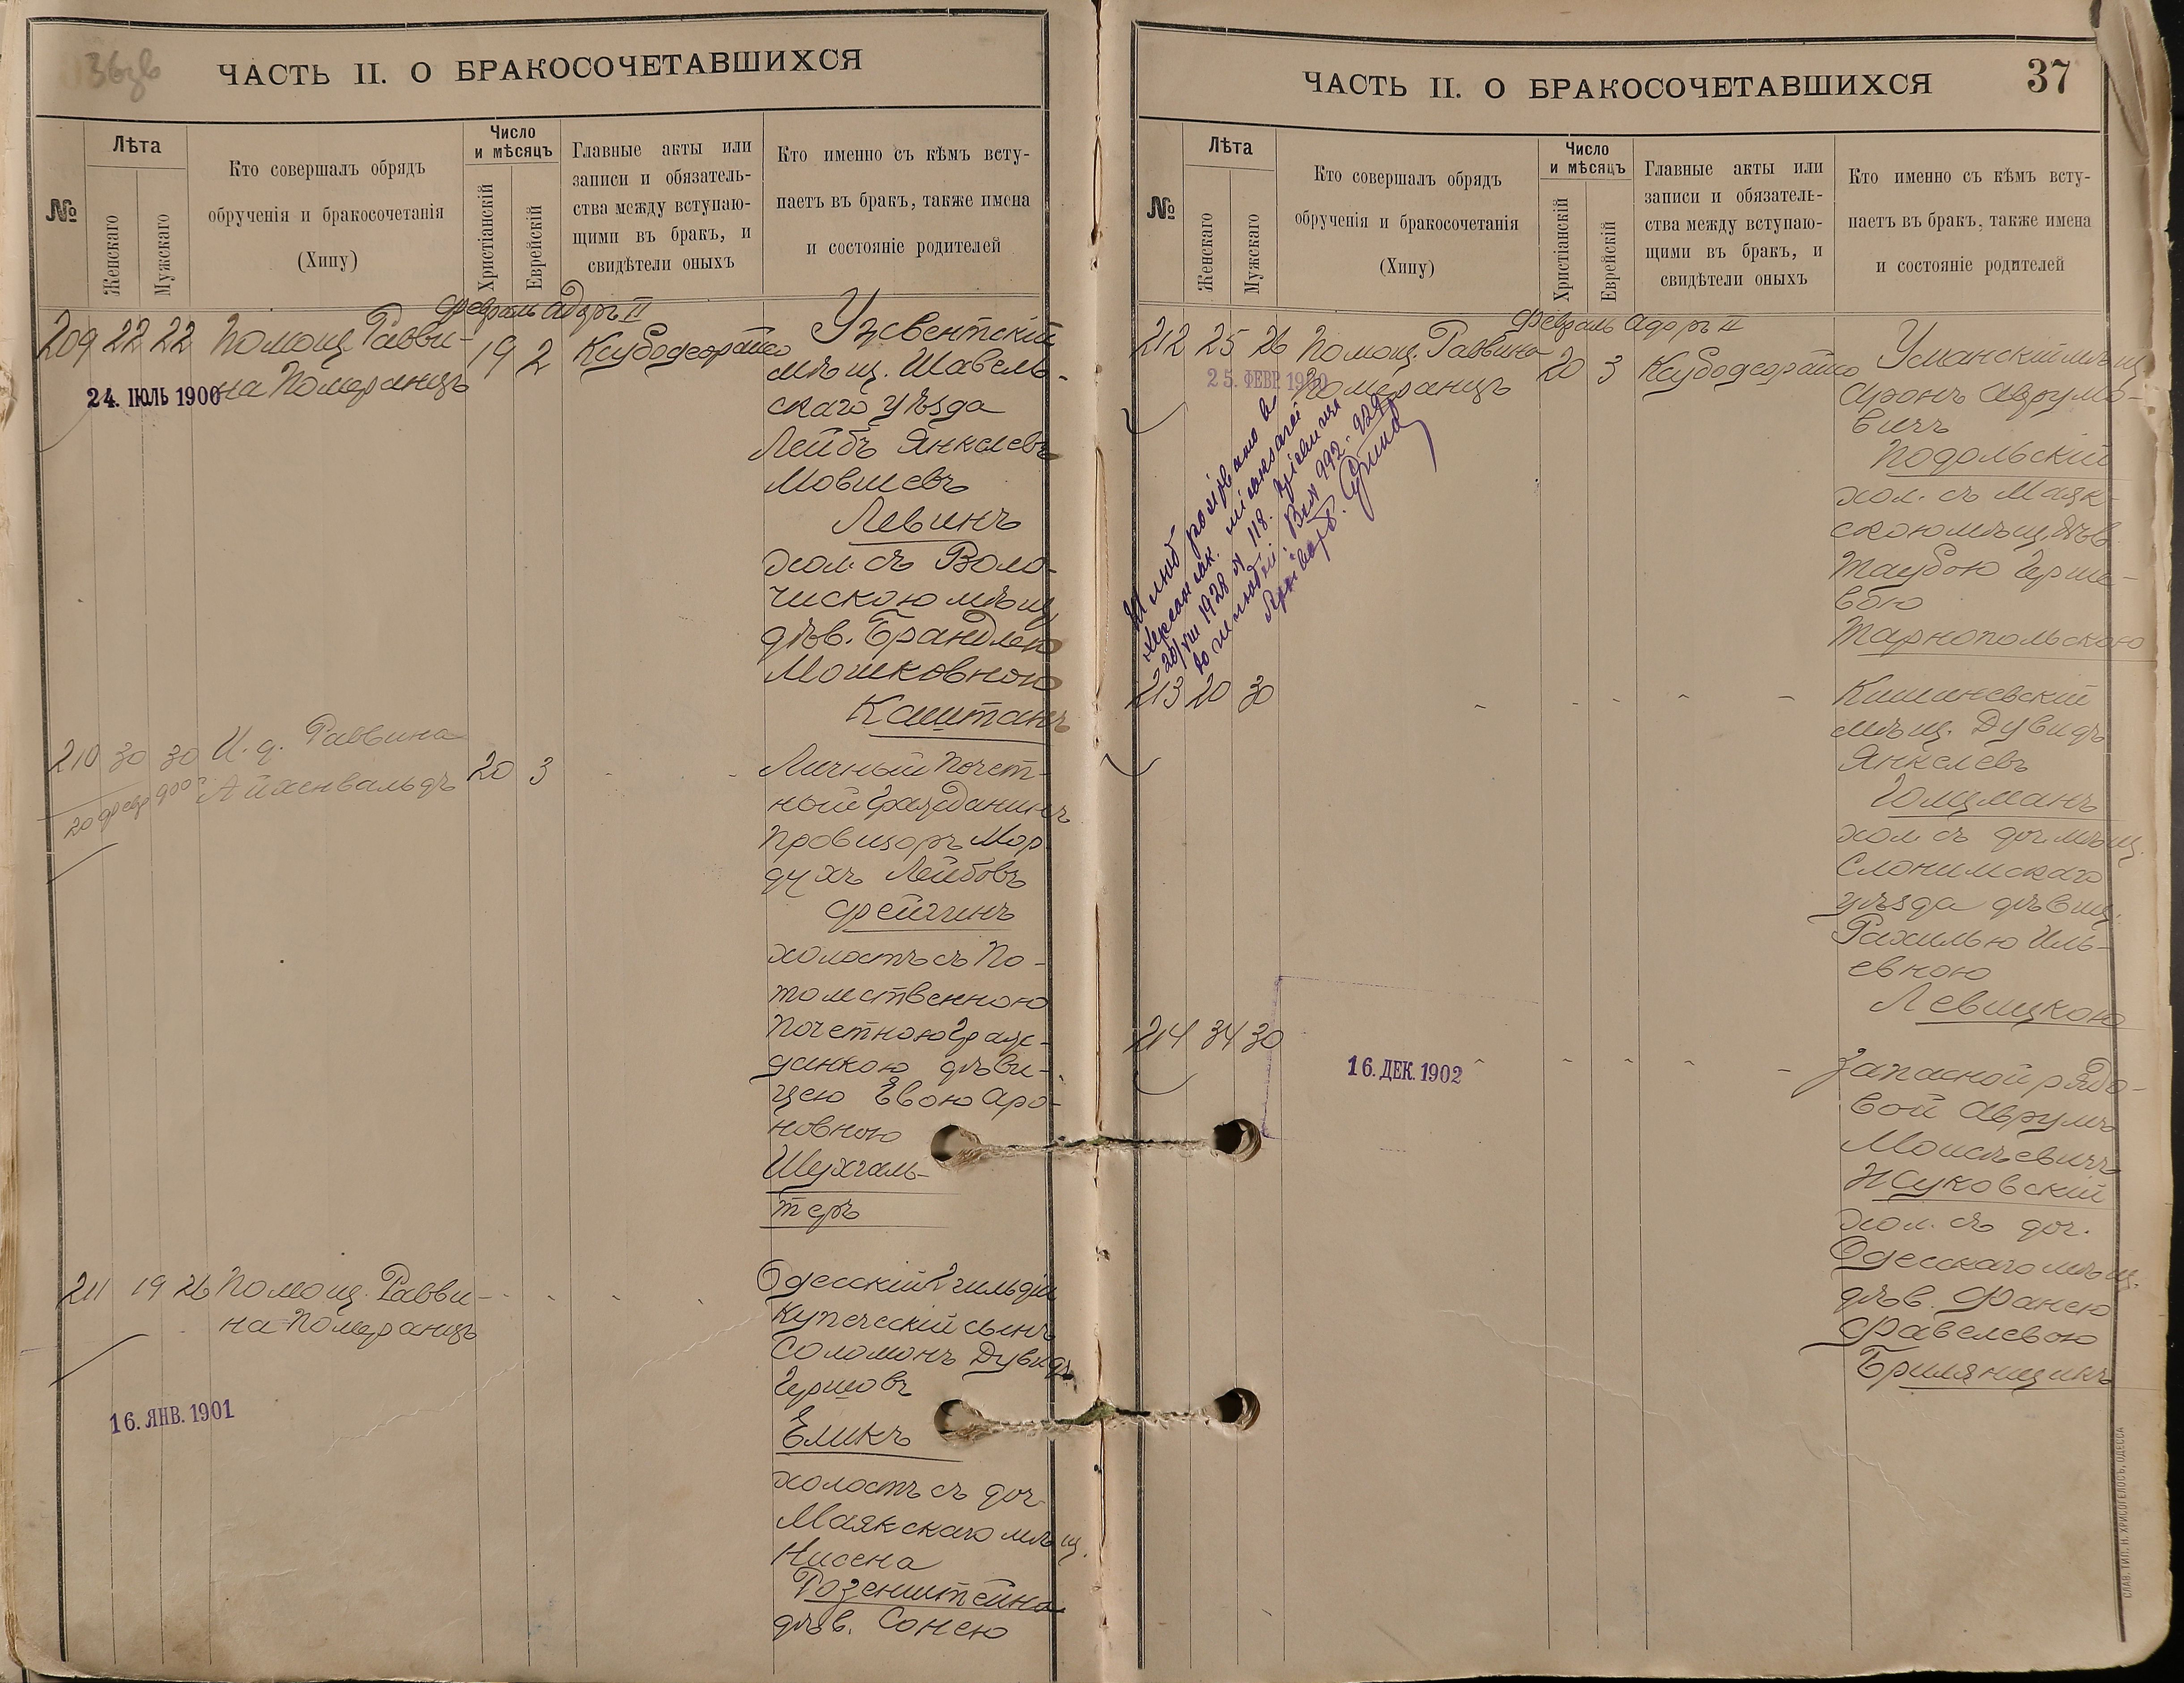 36зв
ЧАСТЬ II. О БРАКОСОЧЕТАВШИХСЯ
№
Лѣта
Женскаго
Мужскаго
Кто совершалъ обрядъ
обрученія и бракосочетанія
(Хипу)
Число
и мѣсяцъ
Христіанскій
Еврейскій
Главные акты или
записи и обязатель-
ства между вступаю-
щими въ бракъ, и
свидѣтели оныхъ
Кто именно съ кѣмъ всту-
паетъ въ бракъ, также имена
и состояніе родителей
Февраль Адаръ II
209 22 22 Помощ. Равви-
на Померанцъ
19 2
24. ІЮЛЬ 1900
Узвентскій
мѣщ. Шавель-
скаго уѣзда
Лейбъ Янкелевъ
Мовшевъ
Левинъ
хол. съ Воло-
чискою мѣщ.
дѣв. Брандлею
Мошковною
Каштанъ
210 30 30 И. д. Раввина
Айхенвальдъ
20 3
20 февр 900
Личный Почет-
ный Гражданинъ
Провизоръ Мор
духъ Лейбовъ
Фейгинъ
холостъ съ По-
томственною
Почетною Граж-
данкою дѣви-
цею Евою Аро-
новною
Шухгаль-
теръ
211 19 26 Помощ. Равви-
на Померанцъ
16. ЯНВ. 1901
Одесскій 2 гильдіи
Купеческій сынъ
Соломонъ Дувидъ
Гершовъ
Еликъ
холостъ съ доч
Маякскаго мѣщ.
Нисена
Розенштейна
дѣв. Сонею
ЧАСТЬ II. О БРАКОСОЧЕТАВШИХСЯ
37
№
Лѣта
Женскаго
Мужскаго
Кто совершалъ обрядъ
обрученія и бракосочетанія
(Хипу)
Число
и мѣсяцъ
Христіанскій
Еврейскій
Главные акты или
записи и обязатель-
ства между вступаю-
щими въ бракъ, и
свидѣтели оныхъ
Кто именно съ кѣмъ всту-
паетъ въ бракъ, также имена
и состояніе родителей
Февраль Адаръ II
212 25 26 Помощ. Раввина
Померанцъ
20 3
25. ФЕВР 1900
Уманскій мѣщ
Аронъ Аврумо-
вичъ
Подольскій
хол. съ Маяк-
скою мѣщ. дѣв.
Таубою Герше-
вою
Тарнопольскою
213 20 30
Кишиневскій
мѣщ. Дувидъ
Янкелевъ
Голцманъ
хол. съ доч. мѣщ.
Слонимскаго
уѣзда дѣвиц.
Рахилью Иль-
евною
Левицкою
214 34 30
16. ДЕК. 1902
Запасной рядо-
вой Аврумъ
Моисѣевичъ
Жуковскій
хол. съ доч.
Одесскаго мѣщ.
дѣв. Фанею
Фавелевою
Брилянщикъ
СЛАВ. ТИП. Н. ХРИСОГЕЛОСЪ, ОДЕССА